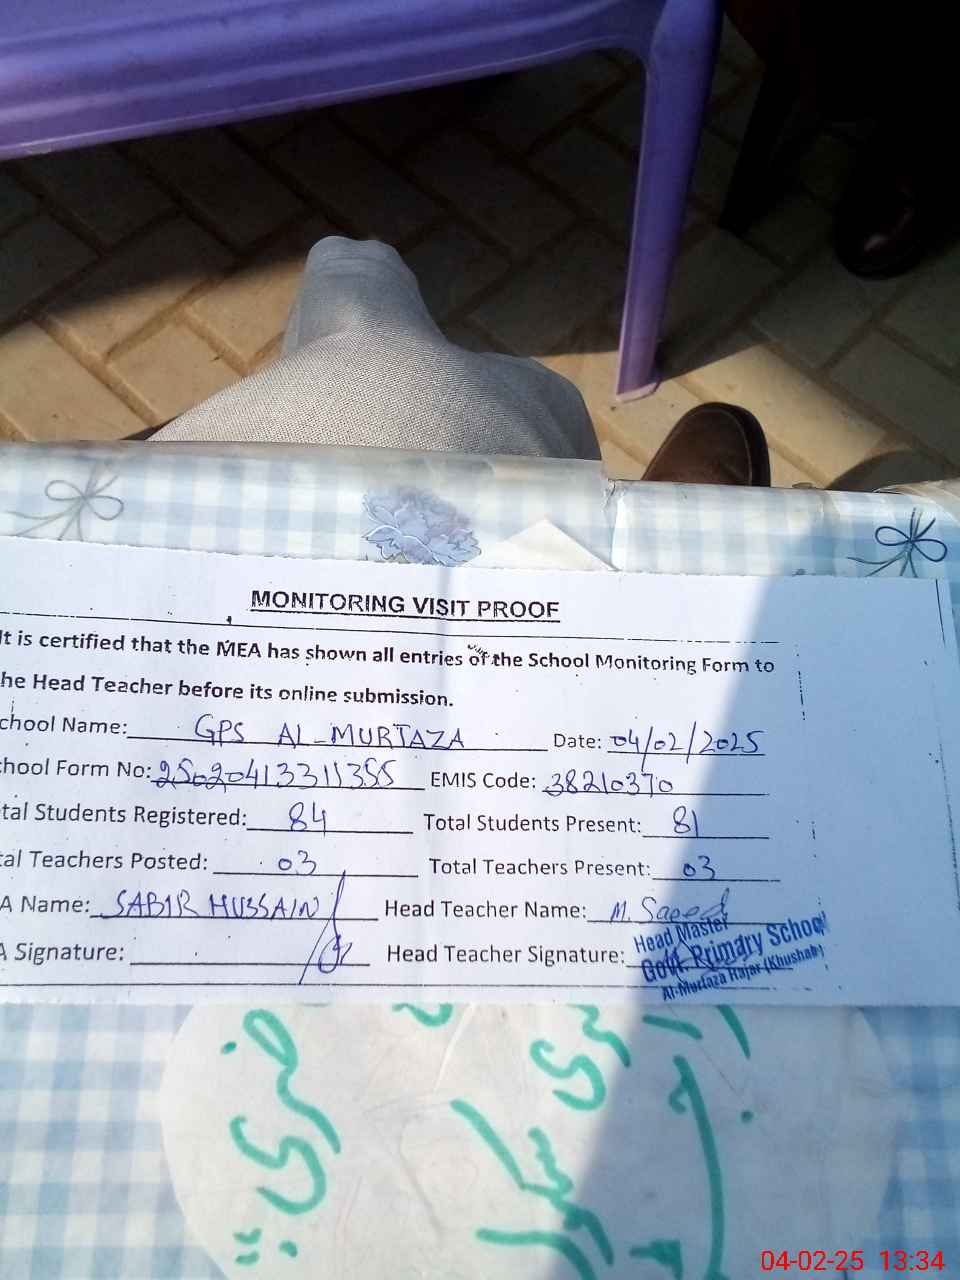 MONITORING VISIT PROOF
It is certified that the MEA has shown all entries of the School Monitoring Form to
he Head Teacher before its online submission.
chool Name: GPS AL-MURTAZA Date: 04/02/2025
chool Form No: 25020413311355 EMIS Code: 38210370
tal Students Registered: 84 Total Students Present: 81
tal Teachers Posted: 03 Total Teachers Present: 03
A Name: SABIR HUSSAIN Head Teacher Name: M. Saeed
A Signature: Head Teacher Signature:
Head Master
Govt. Primary School
Al-Murtaza Rajar (Khushab)
04-02-25 13:34